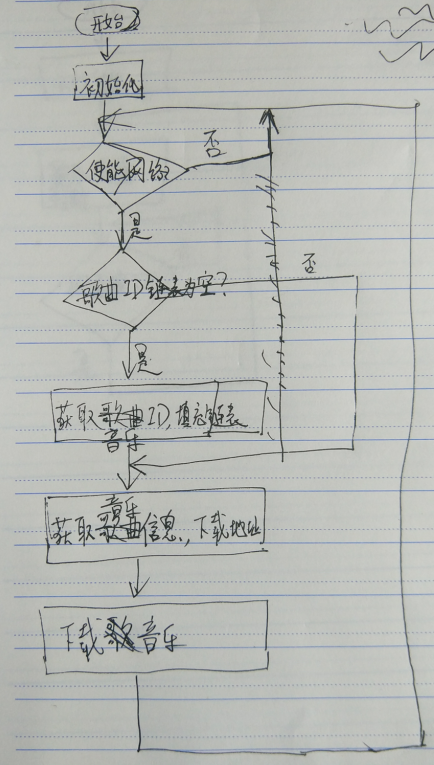 开始
初始化
使能网络?
否
是
歌曲ID链表为空?
否
是
获取歌曲ID,填充链表
音乐
音乐
获取歌曲信息,下载地址
下载音乐